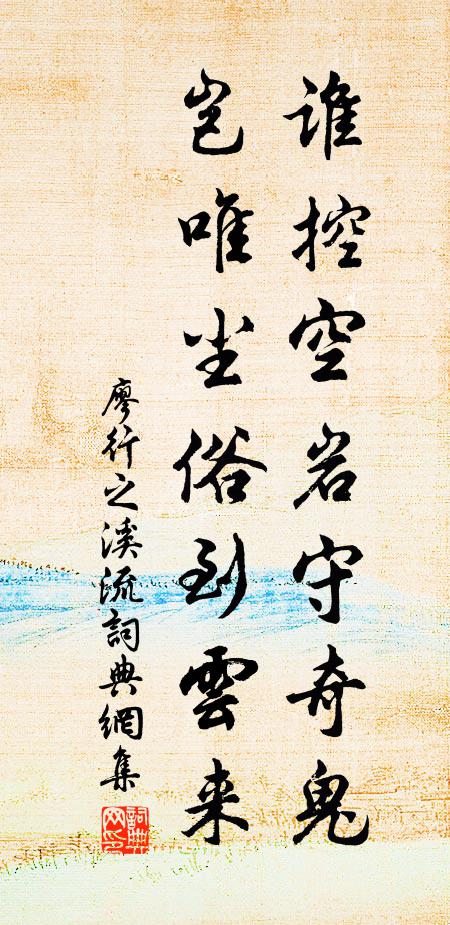 谁控空岩守奇鬼
岂唯尘俗到雲来
廖行之溪流詞典網集
詞典
网印